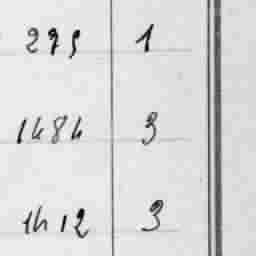 275 1
1484 3
1412 3